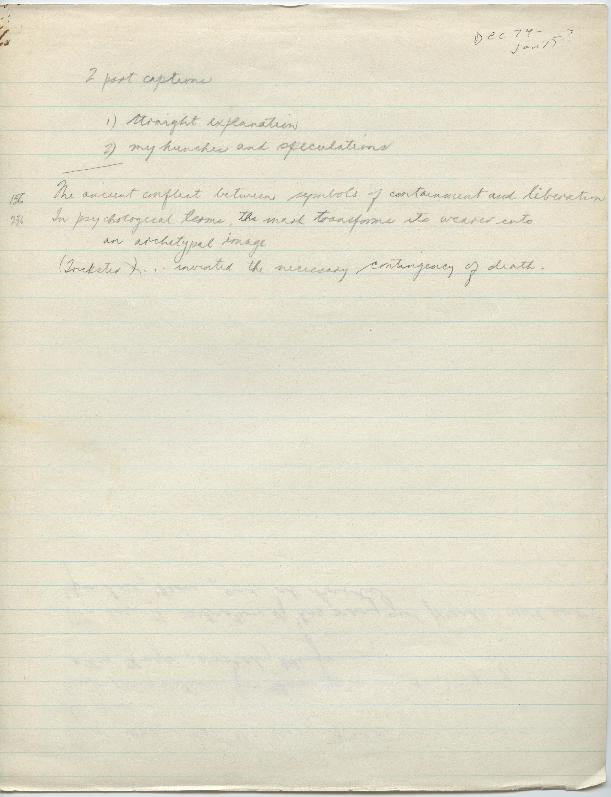 Dec 74-
Jan 75?
2 part captions
1) straight explanation
2) my hunches and speculations
156 The ancient conflict between symbols of containment and liberation
236 In psychological terms, the mask transforms its wearer into
an archetypal image
(Trickster)... invented the necessary contingency of death.